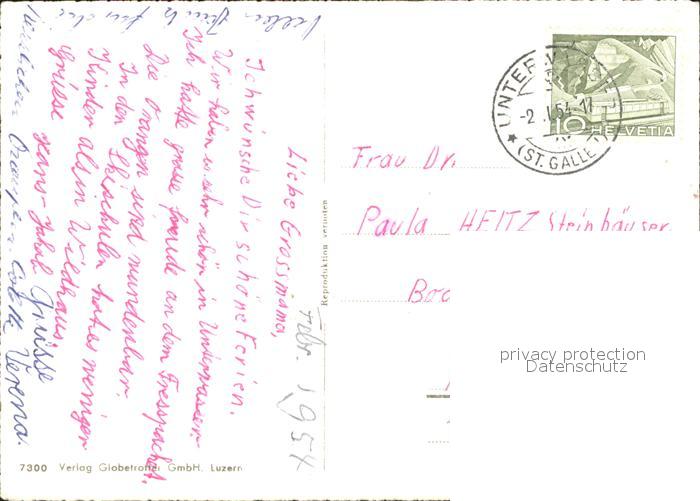 Liebe Grossmama,
Ich wünsche Dir schöne Ferien.
Wir haben es sehr schön in Unterwasser.
Ich hatte grosse Freude an dem Fresspacket.
Die Orangen sind wunderbar.
In den Skischulen hat es weniger
Kinder als in Wildhaus.
Grüsse Hans-Jakob
Grüsse
Verena.
Febr. 1954
Reproduktion verboten
7300 Verlag Globetrotter GmbH. Luzern
UNTERWASSER
-2. I.54.-17
(ST. GALLEN)
10 HELVETIA
Frau Dr.
Paula HEITZ Steinhäuser
privacy protection
Datenschutz